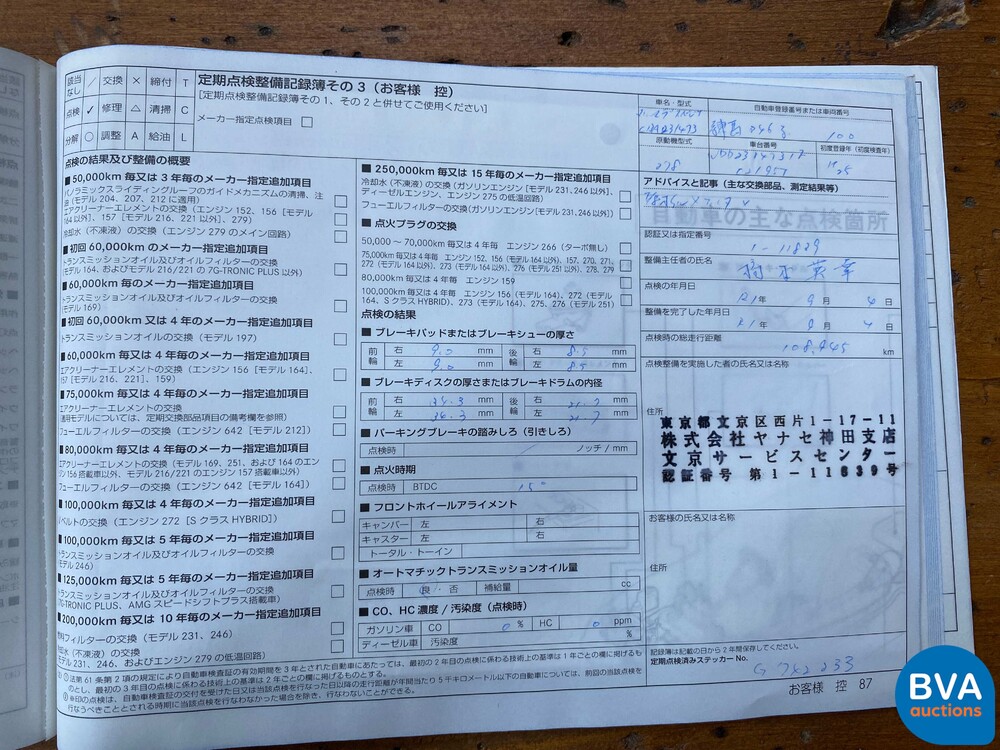 該当なし / 交換 × 締付 T
点検 ✓ 修理 △ 清掃 C
分解 ○ 調整 A 給油 L
定期点検整備記録簿その3（お客様 控）
[定期点検整備記録簿その1、その2と併せてご使用ください]
メーカー指定点検項目 □
点検の結果及び整備の概要
■50,000km 毎又は3年毎のメーカー指定追加項目
パノラミックスライディングルーフのガイドメカニズムの清掃、注
油（モデル 204、207、212 に適用）
エアクリーナーエレメントの交換（エンジン 152、156［モデル
164 以外］、157［モデル 216、221 以外］、279）
冷却水（不凍液）の交換（エンジン 279 のメイン回路）
■初回 60,000km のメーカー指定追加項目
トランスミッションオイル及びオイルフィルターの交換
（モデル 164、およびモデル 216/221 の 7G-TRONIC PLUS 以外）
■60,000km 毎のメーカー指定追加項目
トランスミッションオイル及びオイルフィルターの交換
（モデル 169）
■初回 60,000km 又は 4 年毎のメーカー指定追加項目
トランスミッションオイルの交換（モデル 197）
■60,000km 毎又は 4 年毎のメーカー指定追加項目
エアクリーナーエレメントの交換（エンジン 156［モデル 164］、
157［モデル 216、221］、159）
■75,000km 毎又は 4 年毎のメーカー指定追加項目
エアクリーナーエレメントの交換
（適用モデルについては、定期交換部品項目の備考欄を参照）
フューエルフィルターの交換（エンジン 642［モデル 212］）
■80,000km 毎又は 4 年毎のメーカー指定追加項目
エアクリーナーエレメントの交換（モデル 169、251、および 164 のエン
ジン 156 搭載車以外、モデル 216/221 のエンジン 157 搭載車以外）
フューエルフィルターの交換（エンジン 642［モデル 164］）
■100,000km 毎又は 4 年毎のメーカー指定追加項目
Vベルトの交換（エンジン 272［S クラス HYBRID］）
■100,000km 毎又は 5 年毎のメーカー指定追加項目
トランスミッションオイル及びオイルフィルターの交換
（モデル 246）
■125,000km 毎又は 5 年毎のメーカー指定追加項目
トランスミッションオイル及びオイルフィルターの交換
（7G-TRONIC PLUS、AMG スピードシフトプラス搭載車）
■200,000km 毎又は 10 年毎のメーカー指定追加項目
燃料フィルターの交換（モデル 231、246）
冷却水（不凍液）の交換
（モデル 231、246、およびエンジン 279 の低温回路）
■250,000km 毎又は 15 年毎のメーカー指定追加項目
冷却水（不凍液）の交換（ガソリンエンジン［モデル 231、246 以外］、
ディーゼルエンジン、エンジン 275 の低温回路）
フューエルフィルターの交換（ガソリンエンジン［モデル 231、246 以外］）
■点火プラグの交換
50,000 ～ 70,000km 毎又は 4 年毎 エンジン 266（ターボ無し）
75,000km 毎又は 4 年毎 エンジン 152、156（モデル 164 以外）、157、270、271、
272（モデル 164 以外）、273（モデル 164 以外）、276（モデル 251 以外）、278、279
80,000km 毎又は 4 年毎 エンジン 159
100,000km 毎又は 4 年毎 エンジン 156（モデル 164）、272（モデル
164、S クラス HYBRID）、273（モデル 164）、275、276（モデル 251）
点検の結果
■ブレーキパッドまたはブレーキシューの厚さ
前輪 右 9.0 mm 後輪 右 8.5 mm
左 9.0 mm 左 8.5 mm
■ブレーキディスクの厚さまたはブレーキドラムの内径
前輪 右 34.3 mm 後輪 右 21.7 mm
左 34.3 mm 左 21.7 mm
■パーキングブレーキの踏みしろ（引きしろ）
点検時 ノッチ / mm
■点火時期
点検時 BTDC 15°
■フロントホイールアライメント
キャンバー 左 右
キャスター 左 右
トータル・トーイン
■オートマチックトランスミッションオイル量
点検時 良・否 補給量 cc
■CO、HC 濃度 / 汚染度（点検時）
ガソリン車 CO 0 % HC 0 ppm
ディーゼル車 汚染度 %
車名・型式 自動車登録番号または車両番号
練馬 100
原動機型式 車台番号 初度登録年（初度検査年）
278
アドバイスと記事（主な交換部品、測定結果等）
自動車の主な点検箇所
認証又は指定番号
1-11839
整備主任者の氏名
点検の年月日
R1年 9月 4日
整備を完了した年月日
R1年 9月 4日
点検時の総走行距離
108,445 km
点検整備を実施した者の氏名又は名称
住所
東京都文京区西片1-17-11
株式会社ヤナセ神田支店
文京サービスセンター
認証番号 第1-11639号
お客様の氏名又は名称
住所
記録簿は記載の日から 2 年間保存してください。
定期点検済みステッカー No.
G 742233
法第 61 条第 2 項の規定により自動車検査証の有効期間を 3 年とされた自動車にあたっては、最初の 2 年目の点検に係わる技術上の基準は 1 年ごとの欄に掲げるも
のとし、最初の 3 年目の点検に係わる技術上の基準は 2 年ごとの欄に掲げるものとする。
※印の点検は、自動車検査証の交付を受けた日又は当該点検を行なった日以降の走行距離が年間当り 5 千キロメートル以下の自動車については、前回の当該点検を
行なうべきこととされる時期に当該点検を行なわなかった場合を除き、行わないことができる。
お客様 控 87
BVA
auctions